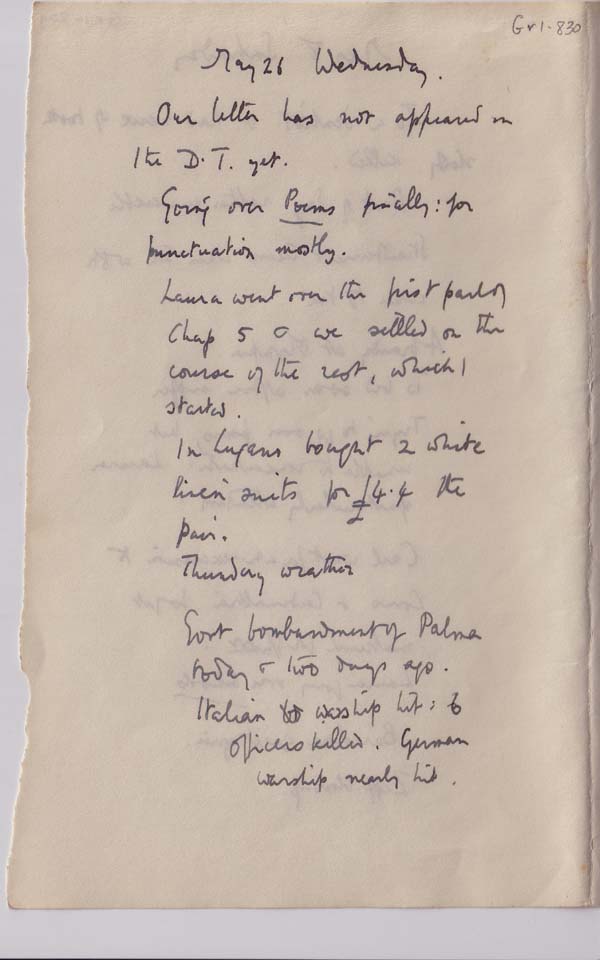 Gr1-830
May 26 Wednesday.
Our letter has not appeared in
the D.T. yet.
Going over Poems finally: for
punctuation mostly.
Laura went over the first part of
Chap 5 & we settled on the
course of the rest, which I
started.
In Lugano bought 2 white
linen suits for £4.4 the
pair.
Thundery weather
Govt bombardment of Palma
today & two days ago.
Italian warship hit: 6
officers killed. German
warship nearly hit.